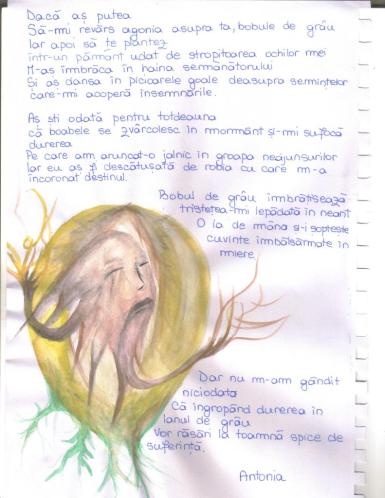 Dacă aș putea
Să-mi revărs agonia asupra ta, bobule de grâu
Iar apoi să te plantez
într-un pământ udat de stropitoarea ochilor mei
M-aș îmbrăca în haina semănătorului
Și aș dansa în picioarele goale deasupra semințelor
care-mi acoperă însemnările.
As sti odată pentru totdeauna
că boabele se zvârcolesc în mormânt și-mi sufocă
durerea
Pe care am aruncat-o jalnic în groapa neajunsurilor
Iar eu as fi descătușată de robia cu care m-a
încoronat destinul.
Bobul de grâu îmbrățisează
tristetea-mi lepădată în neant
O ia de mâna și-i șoptește
cuvinte îmbălsărmate în
miere.
Dar nu m-am gândit
niciodata
Că îngropând durerea în
lanul de grâu
Vor răsări la toamnă spice de
suferință.
Antonia